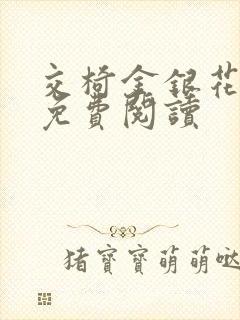 交椅金銀花
免費閱讀
豬寶寶萌萌噠